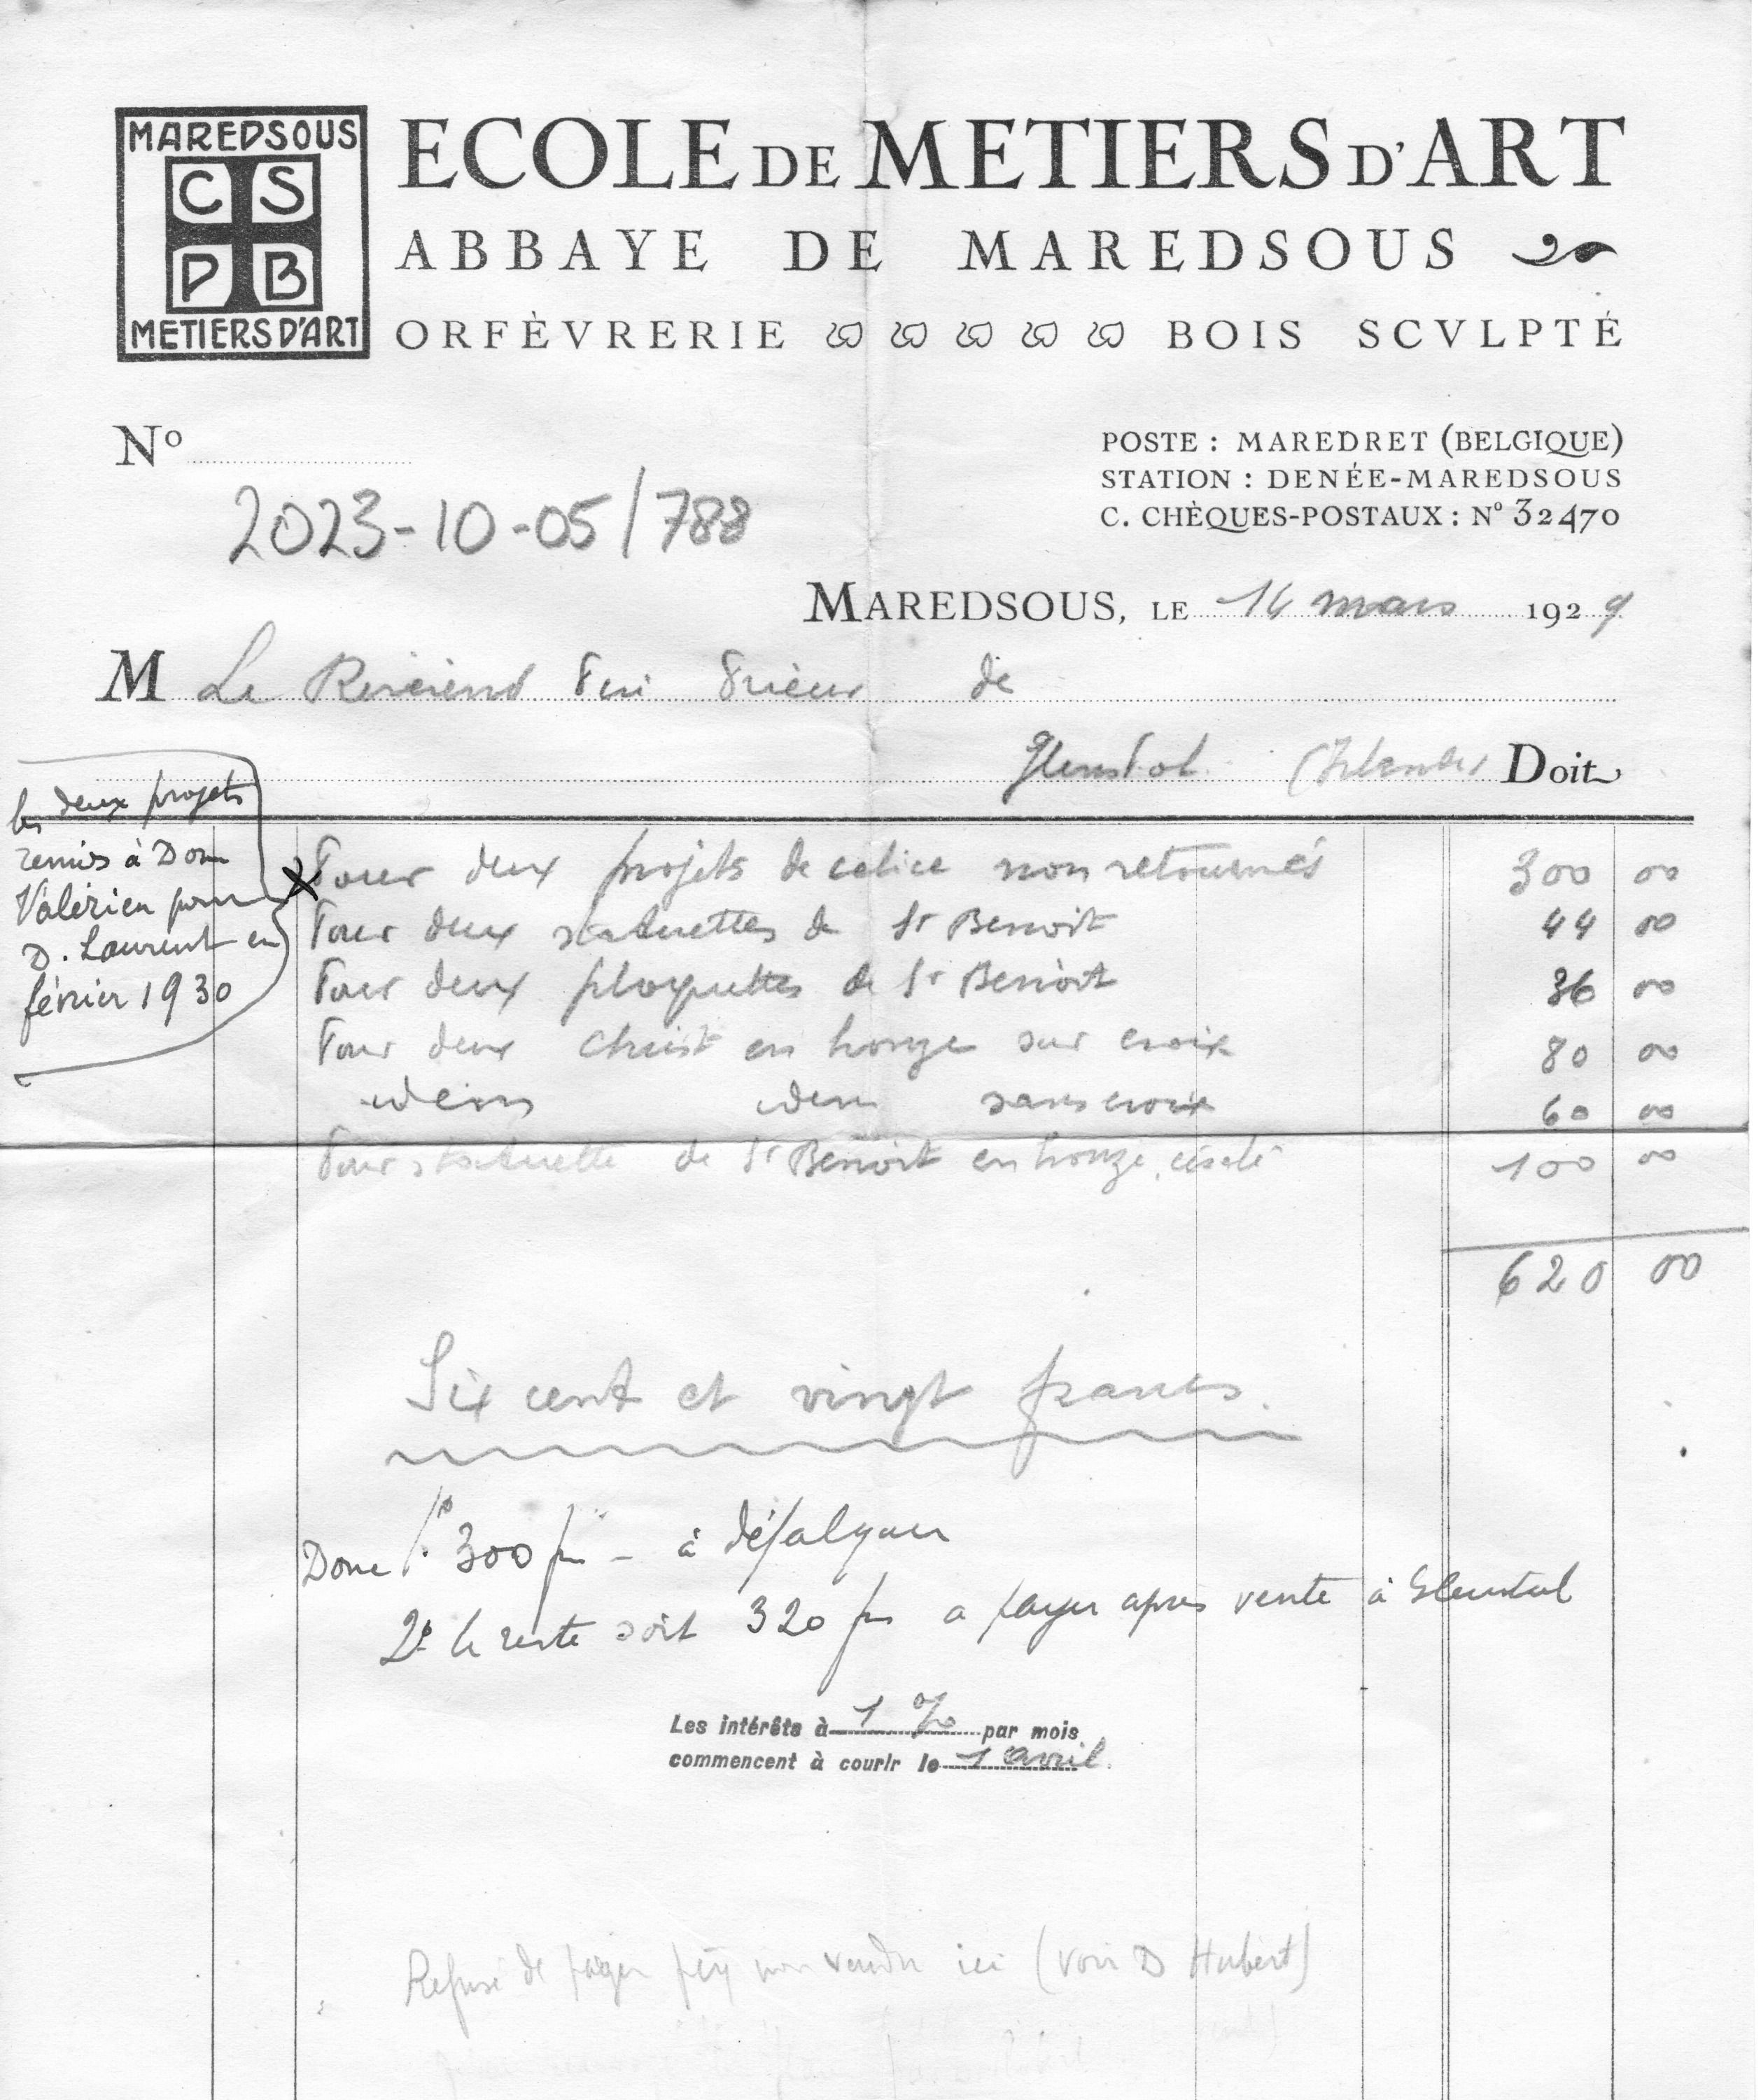 MAREDSOUS
C S
P B
METIERS D'ART
ECOLE DE METIERS D'ART
ABBAYE DE MAREDSOUS
ORFÈVRERIE BOIS SCVLPTÉ
No
POSTE : MAREDRET (BELGIQUE)
STATION : DENÉE-MAREDSOUS
C. CHÈQUES-POSTAUX : No 32470
2023-10-05/788
MAREDSOUS, LE 14 mars 1929
M Le Révérend Père Prieur de
Glenstal (Irlande) Doit
les deux projets
remis à Dom
Valérien pour
D. Laurent en
février 1930
X Pour deux projets de calice non retournés 300 00
Pour deux statuettes de St Benoit 44 00
Pour deux plaquettes de St Benoit 36 00
Pour deux Christ en bronze sur croix 80 00
idem idem sans croix 60 00
Pour statuette de St Benoit en bronze, ciselé 100 00
620 00
Six cent et vingt francs.
Donc 1o 300 frs - à défalquer
2o le reste soit 320 frs a payer apres vente à Glenstal
Les intérêts à 1 % par mois
commencent à courir le 1 avril.
Refusé de payer non vendu ici (voir D Hubert)